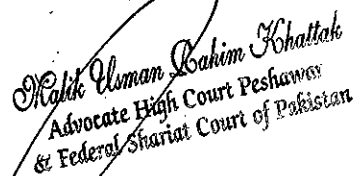 Malik Usman Rahim Khattak
Advocate High Court Peshawar
& Federal Shariat Court of Pakistan